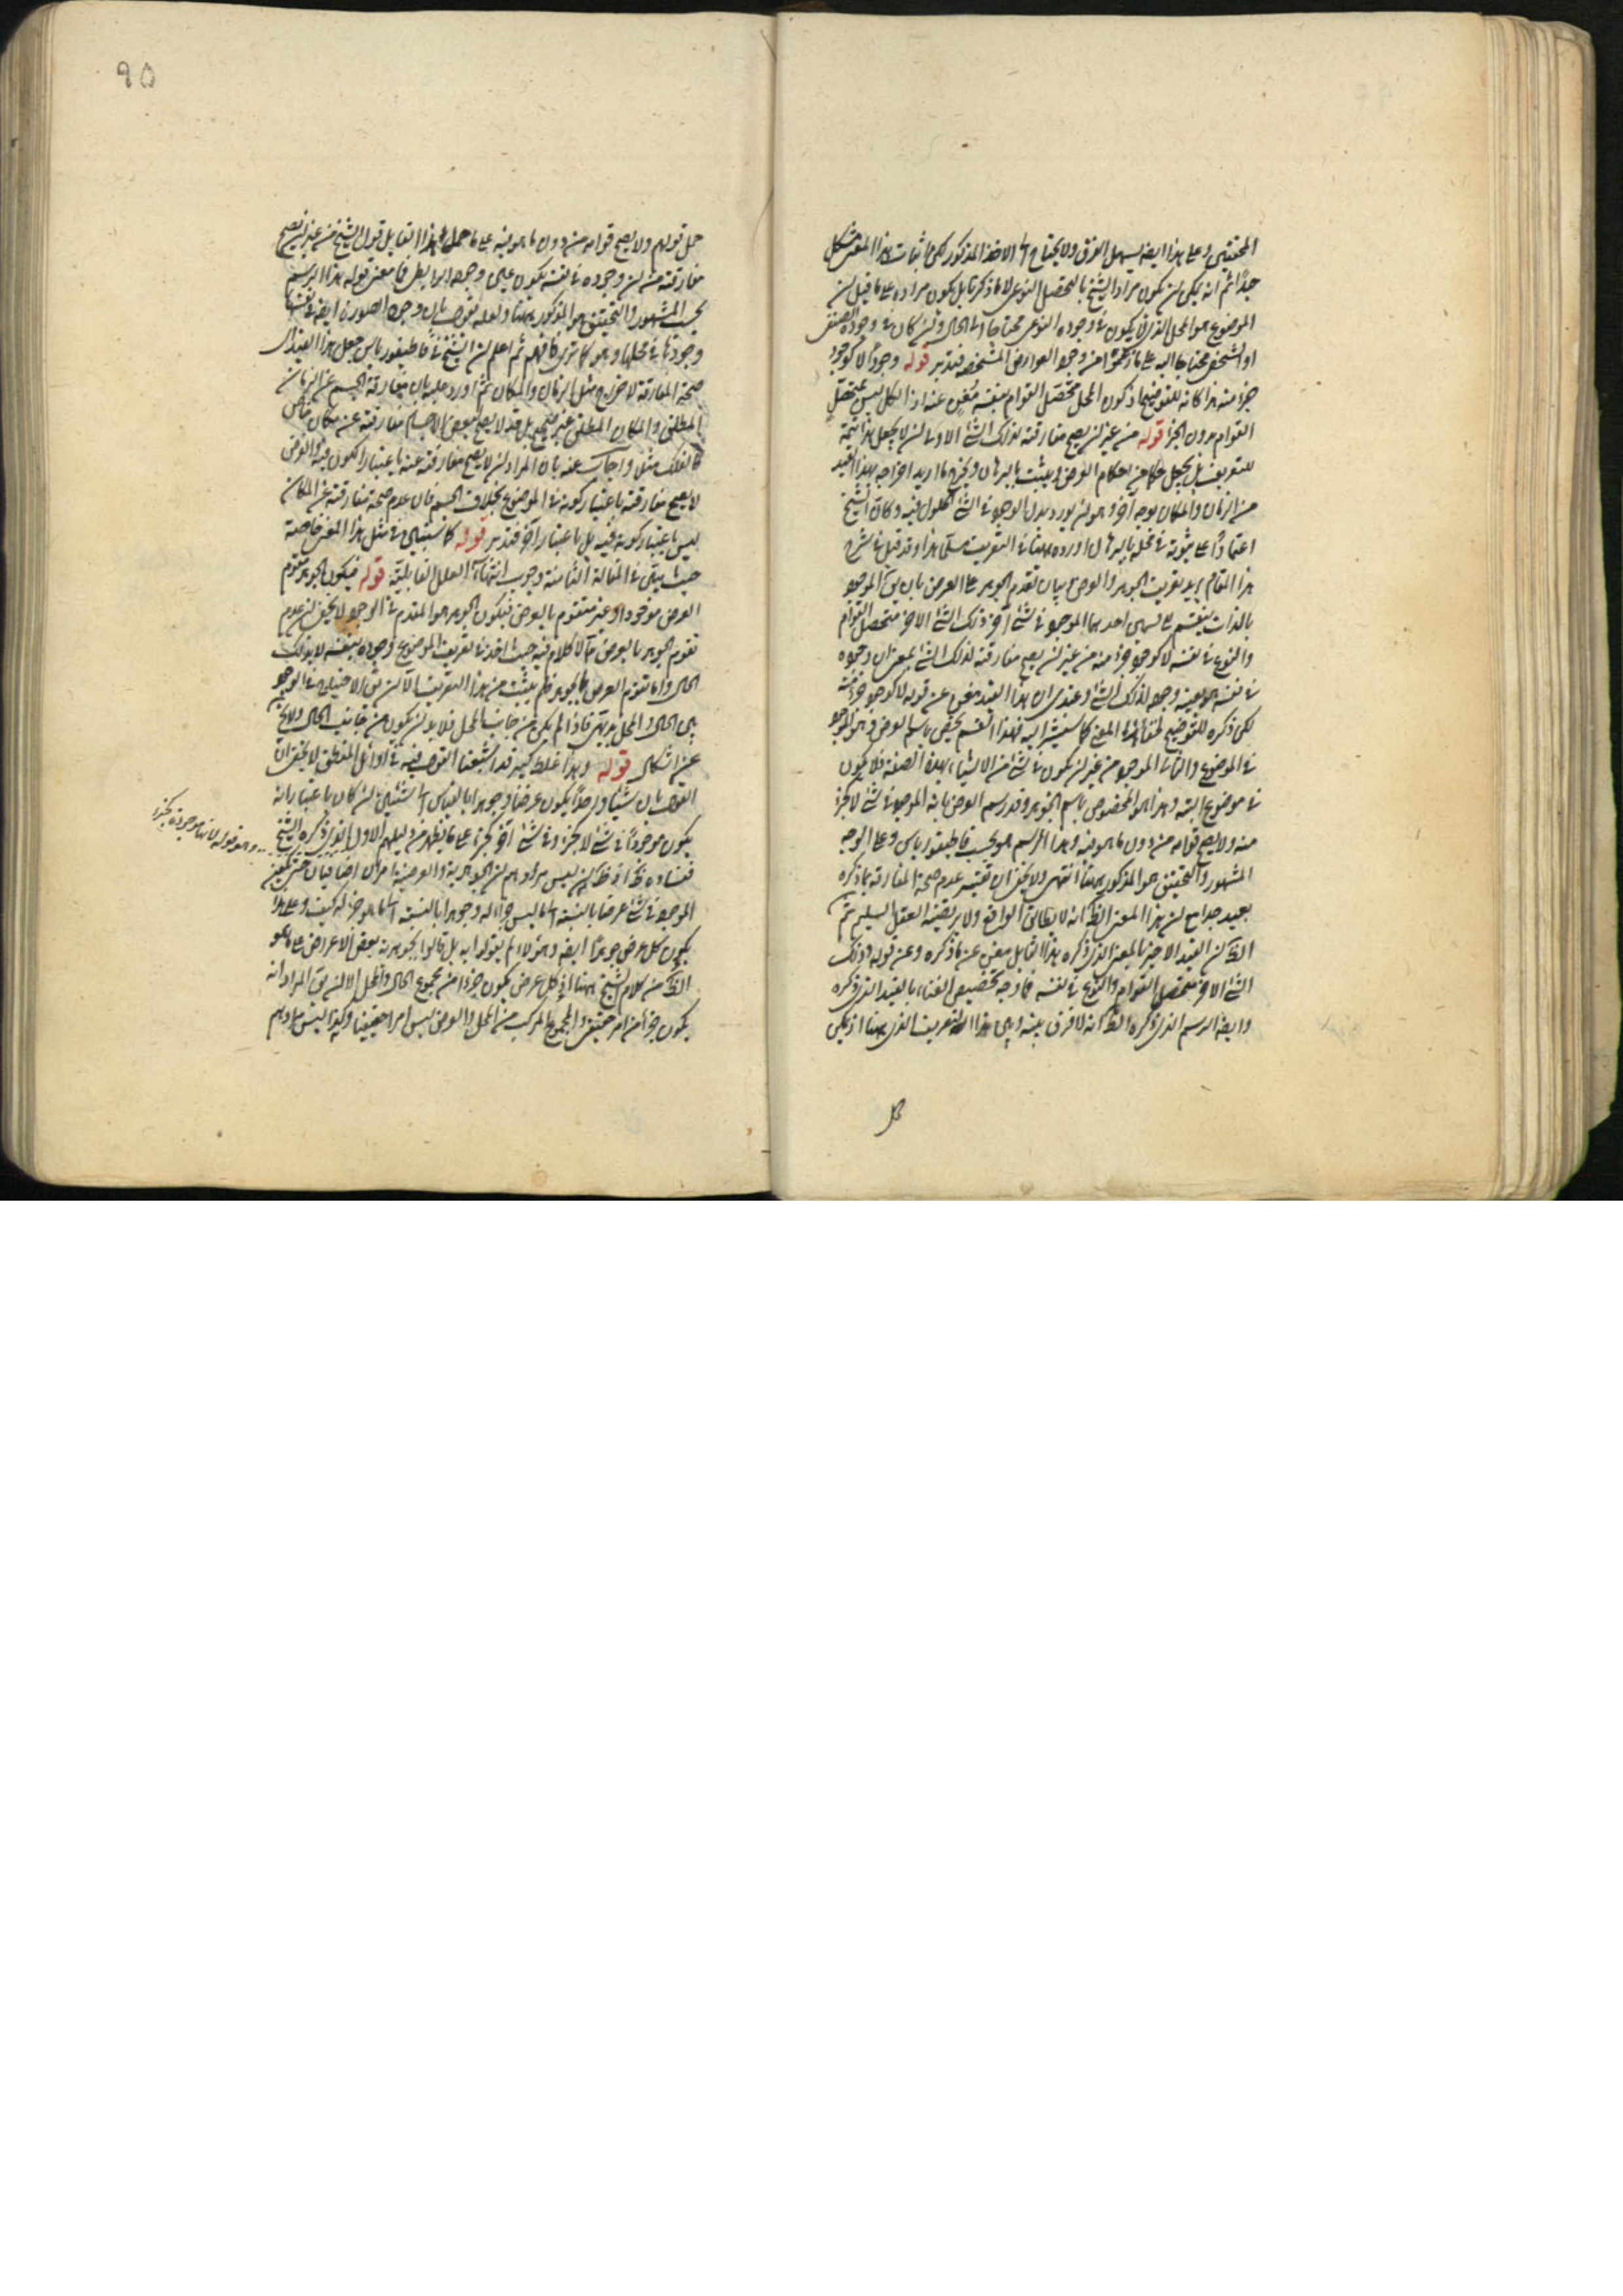 المحققين وعلى هذا ايضا يسهل الفرق ولا يحتاج الى الاخذ المذكور لكن اثبات هذا المعنى مشكل
جداً ثم انه يمكن ان يكون مراد الشيخ بالتحصل النوعي لا ما ذكر بل يكون مراده على ما قيل ان
الموضوع هو المحل الذي لا يكون في وجوده النوعي محتاجا الى الحال وان كان في وجوده الصنفي
او الشخصي محتاجا اليه على ما من وجوه العوارض المشخصة فتدبر قوله وجوداً لا كوجود
جزء منه هذا كانه للتوضيح اذ كون المحل متحصل القوام بنفسه مغن عنه اذ الكل ليس بمتحصل
القوام بدون الجزء قوله من غير ان يصح مفارقته لذلك الشئ الاولى ان لا يجعل هذا تتمة
للتعريف بل يجعل حكما من احكام العرض ويثبت بالبرهان ويخرج ما اريد اخراجه بهذا القيد
من الزمان والمكان بوجه آخر وهو ان يورد بدل الوجود في الشئ الحلول فيه وكان الشيخ
اعتماداً على ثبوته في محله بالبرهان اورده ههنا في التعريف مسلما هذا وقد قيل في شرح
هذا المقام يريد تعريف الجوهر والعرض وبيان تقدم الجوهر على العرض بان يق الموجود
بالذات ينقسم الى قسمين احدهما الموجود في شئ آخر ذلك الشئ الآخر متحصل القوام
والنوع في نفسه لا كوجود جزء منه من غير ان يصح مفارقته لذلك الشئ بمعنى ان وجوده
في نفسه هو بعينه وجوده لذلك الشئ وعندي ان هذا القيد مغن عن قوله لا كوجود جزء منه
لكن ذكره للتوضيح لخفاء هذا المعنى كما سنشير اليه فهذا القسم يختص باسم العرض وهو الموجود
في الموضوع والثاني الموجود من غير ان يكون في شئ من الاشياء بهذه الصفة فلا يكون
في موضوع البتة وهذا هو المخصوص باسم الجوهر وقد رسم العرض بانه الموجود في شئ لا كجزء
منه ولا يصح قوامه من دون ما هو فيه وهذا الرسم هو بحسب قاطيغورياس وعلى الوجه
المشهور والتحقيق هو المذكور ههنا انتهى ولا يخفى ان تفسير عدم صحة المفارقة بما ذكره
بعيد جدا مع ان هذا المعنى الظ انه لا يطابق الواقع ولا يرتضيه العقل السليم ثم
الظ ان القيد الاخير بالمعنى الذي ذكره هذا القائل مغن عن ما ذكره وعن قوله وذلك
الشئ الآخر متحصل القوام والنوع في نفسه فما وجه تخصيص الغناء بالقيد الذي ذكره
وايضا الرسم الذي ذكره الظ انه لا فرق بينه وبين هذا التعريف الذي ههنا اذ يمكن
حمل
٩٥
حمل قولهم ولا يصح قوامه من دون ما هو فيه على ما حمل هذا القائل قول الشيخ من غير ان يصح
مفارقته من ان وجوده في نفسه يكون عين وجوده الرابطي فما معنى قوله هذا الرسم
بحسب المشهور والتحقيق هو المذكور ههنا ولعله يقول بان وجود الصورة ايضا في نفسها
وجودها في محلها وهو كما ترى فافهم ثم اعلم ان الشيخ في قاطيغورياس جعل هذا القيد اي
صحة المفارقة لاخراج مثل الزمان والمكان ثم اورد عليه بان مفارقة الجسم عن الزمان
المطلق والمكان المطلق غير صحيح بل قد لا يصح لبعض الاجسام مفارقته عن مكان خاص
كالفلك مثلا واجاب عنه بان المراد ان لا يصح مفارقته عنه باعتبار الكون فيه والعرض
لا يصح مفارقته باعتبار كونه في الموضوع بخلاف الجسم فان عدم صحة مفارقته عن المكان
ليس باعتبار كونه فيه بل باعتبار آخر فتدبر قوله كما سنبين في مثل هذا المعنى خاصة
حيث يبين في المقالة الثامنة وجوب انتهاء العلل القابلية قوله فيكون الجوهر مقوم
العرض موجودا وغير متقوم بالعرض فيكون الجوهر هو المقدم في الوجود لا يخفى ان عدم
تقوم الجوهر بالعرض مما لا كلام فيه حيث اخذ في تعريف الموضوع وجوده بنفسه لا بذلك
الحال واما تقوم العرض بالجوهر فلم يثبت من هذا التعريف الا ان يق الاحتياج في الوجود
بين الحال والمحل بديهي فاذا لم يكن من جانب المحل فلا بد ان يكون من جانب الحال ولا يخ
عن اشكال قوله وهذا غلط كبير قد اشبعنا القول فيه في اوائل المنطق لا يخفى ان
القول بان شيئا واحداً يكون عرضا وجوهرا بالقياس الى شيئين ان كان باعتبار انه
يكون موجوداً في شئ لا كجزء وفي شئ آخر كجزء على ما يظهر من دليلهم الاول الذي ذكره الشيخ
وهو قوله لانها موجودة كجزء
ففساده ظ اذ ظ ان ليس مرادهم ان الجوهرية والعرضية امران اضافيان حتى يكون
الموجود في شئ عرضا بالنسبة الى ما ليس جزءا له وجوهرا بالنسبة الى ما هو جزء له كيف وعلى هذا
يكون كل عرض جوهرا ايضا وهؤلاء لم يقولوا به بل قالوا بجوهرية بعض الاعراض على ما هو
الظ من كلام الشيخ ههنا اذ كل عرض يكون جزءا من مجموع الحال والمحل الا ان يق المراد انه
يكون جزءا من امر حقيقي والمجموع المركب من المحل والعرض ليس امرا حقيقيا وكيف اليس مرادهم